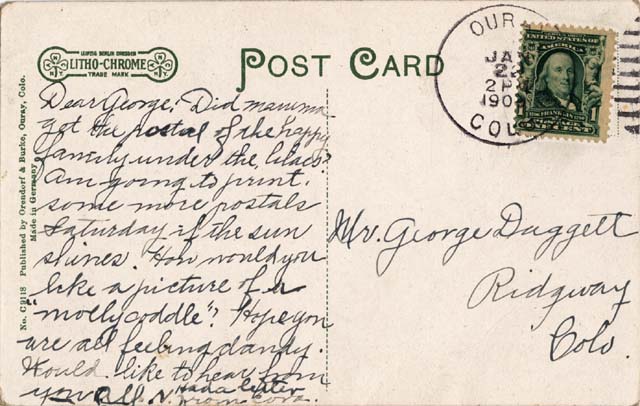 LEIPZIG BERLIN DRESDEN
LITHO-CHROME
N.Y. N.Y.
TRADE MARK
POST CARD
OUR
JA
2
2 P
190
COL
UNITED STATES OF
AMERICA
1
ONE CENT
Dear George: Did mamma
got the postal of the happy
family under the lilacs?
Am going to print
some more postals
Saturday if the sun
shines. How would you
like a picture of a
"mollycoddle"? Hope you
are all feeling dandy.
Would like to hear from
you all. Had a letter
from Cora.
Mr. George Duggett
Ridgway
Colo.
No. C9118 Published by Orendorf & Burke, Ouray, Colo.
Made in Germany